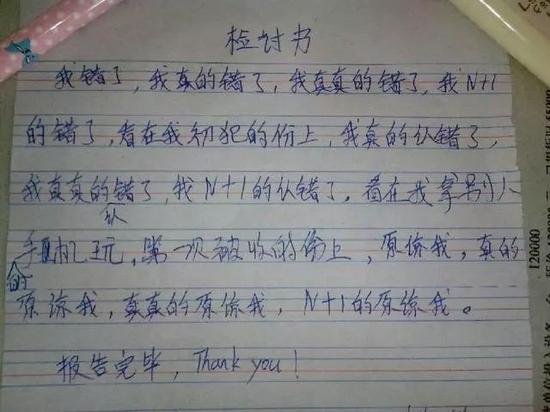 检讨书
我错了，我真的错了，我真真的错了，我N+1
的错了，看在我初犯的份上，我真的认错了，
我真真的认错了，我N+1的认错了，看在我拿别人
的手机玩，第一次被收的份上，原谅我，真的
原谅我，真真的原谅我，N+1的原谅我。
报告完毕，Thank you！
120600